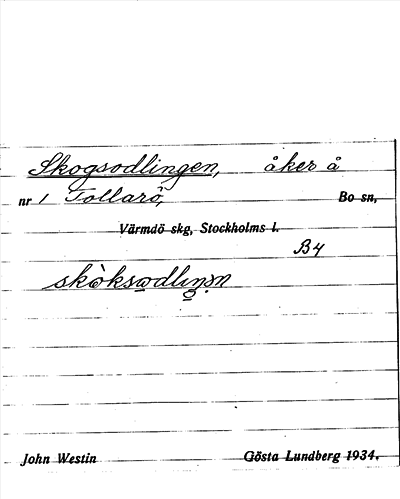 Skogsodlingen, åker å
nr 1 Tollarö, Bo sn,
Värmdö skg, Stockholms l.
B4
John Westin Gösta Lundberg 1934.